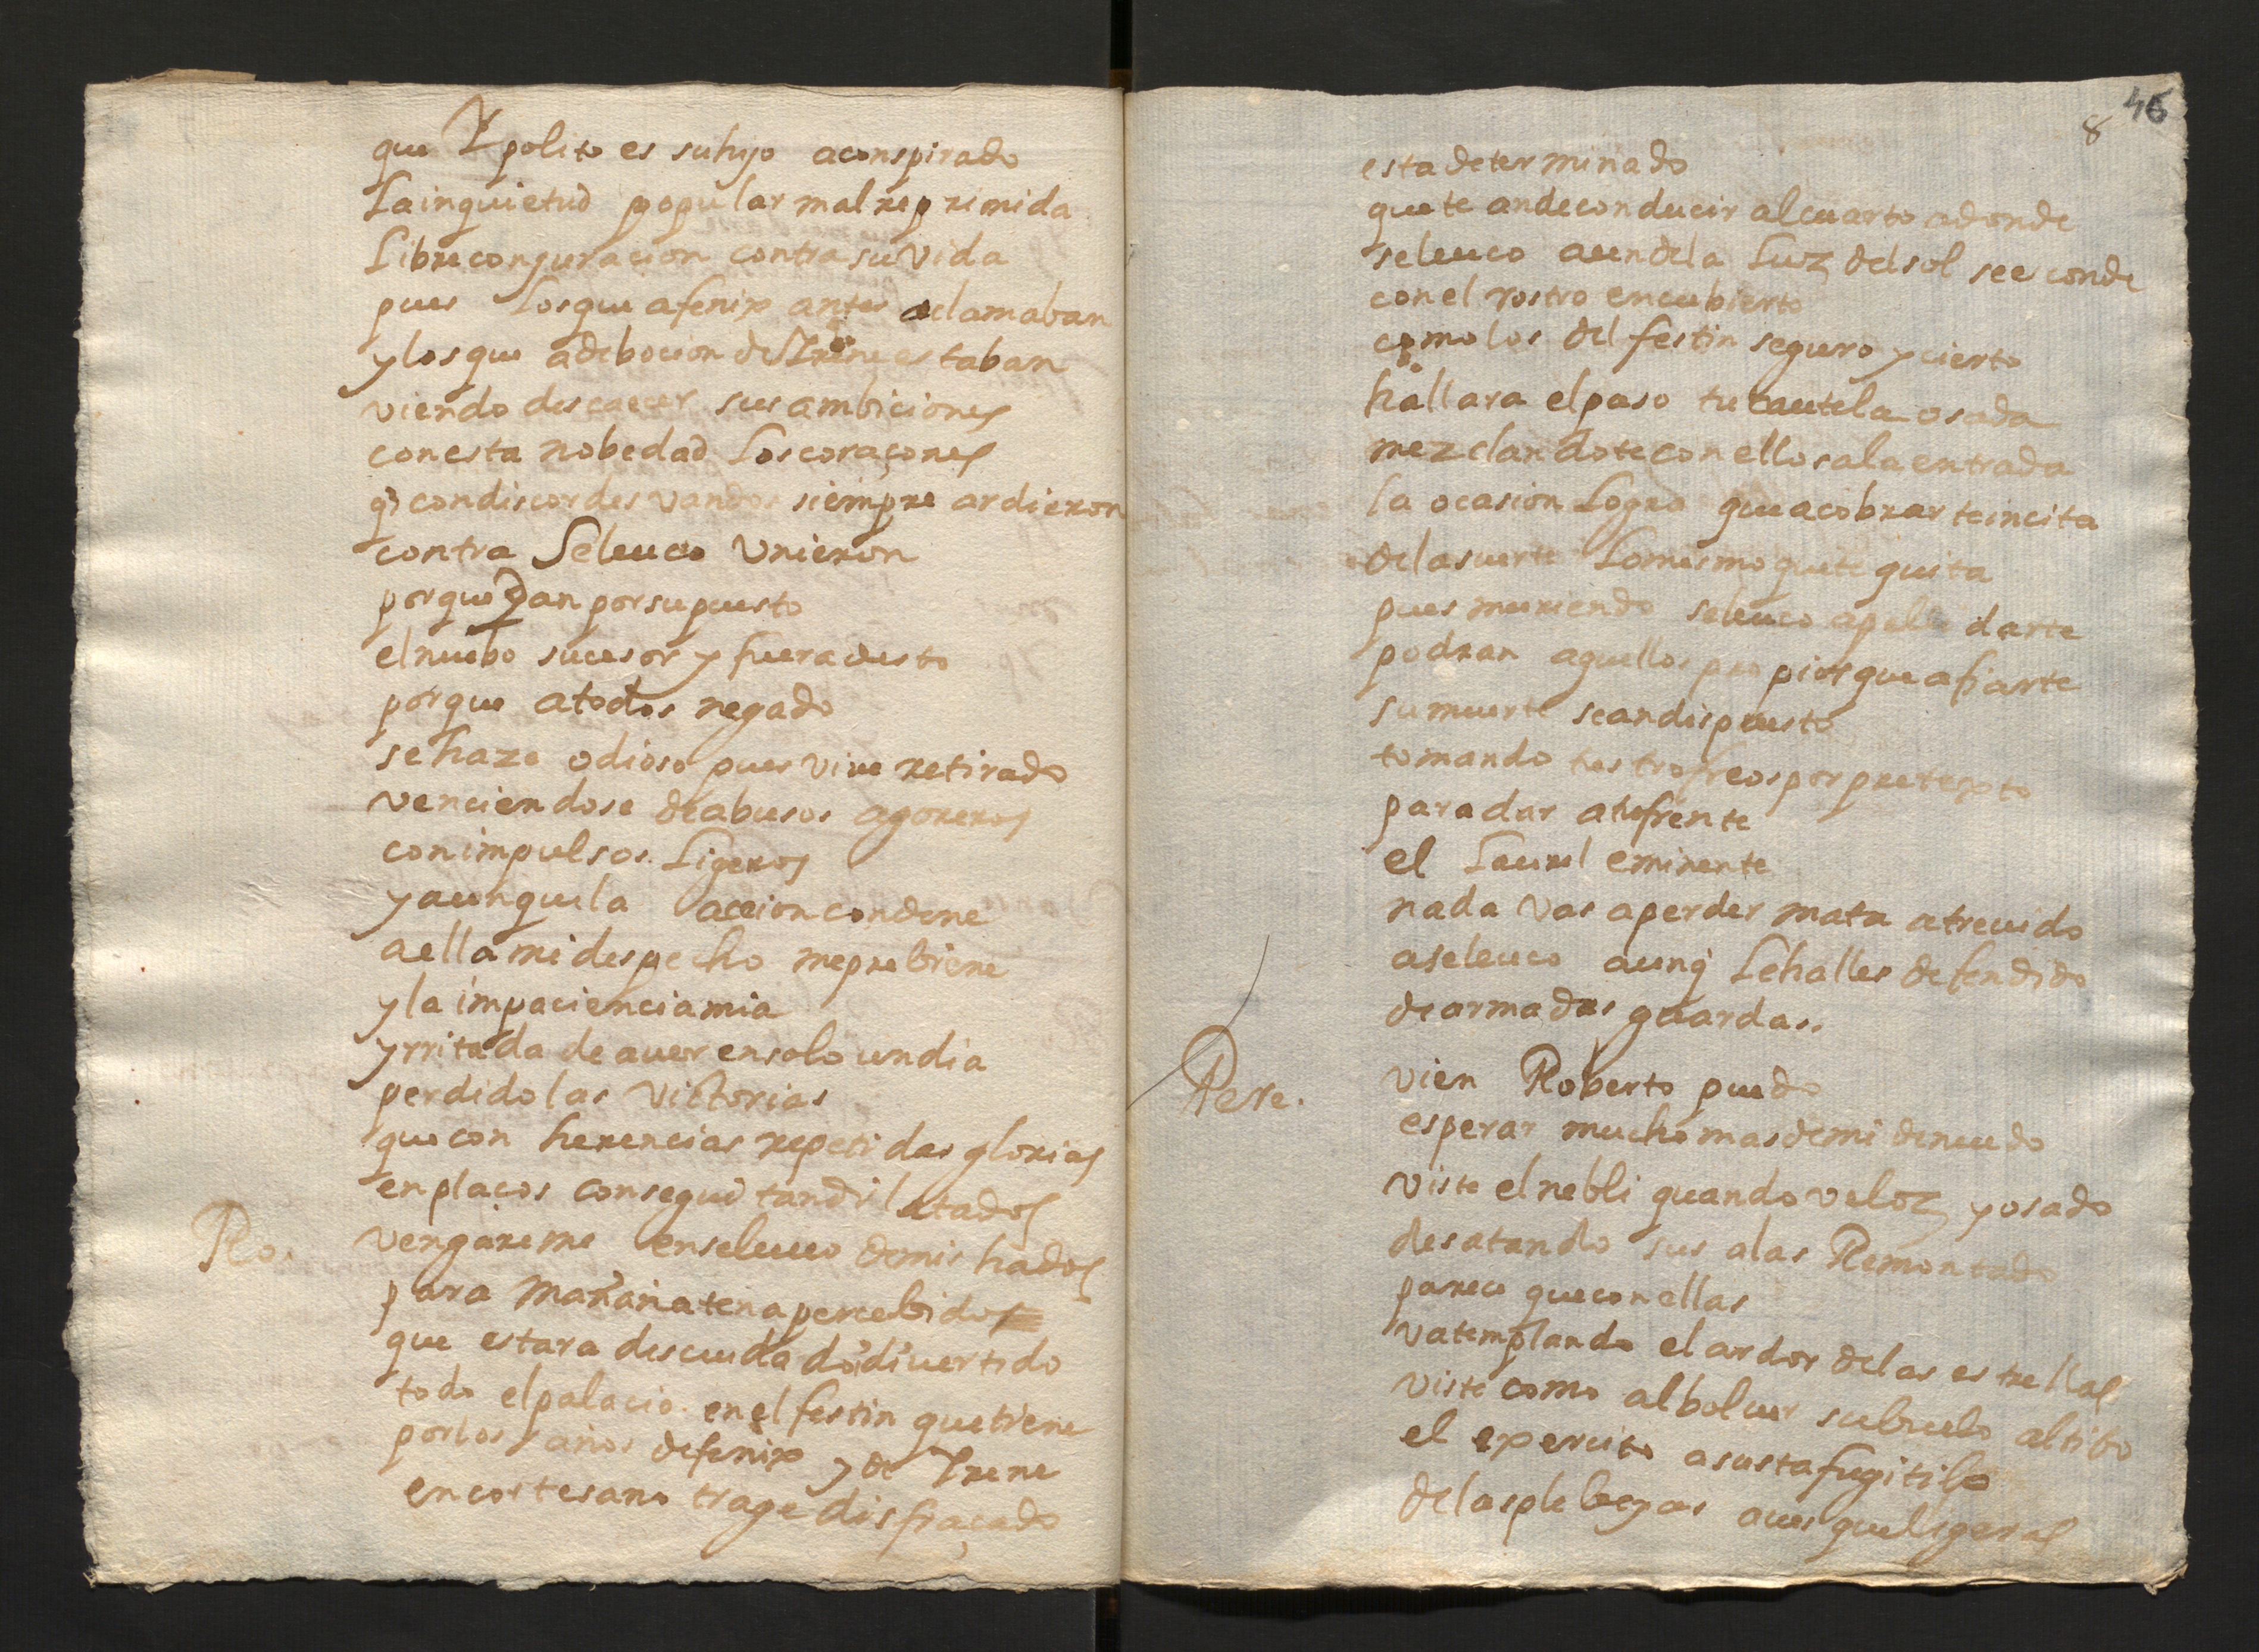 que Ypolito es suhijo aconspirado
Lainquietud popular malreprimida
Libreconjuracion contra su vida
pues Losque afenix antes aclamaban
ylosque adebocion de Irene estaban
viendo descaecer sus ambiciones
conesta nobedad Loscoraçones
q̃ condiscordes vandos siempre ardieron
contra Seleuco Vnieron
porque dan porsupuesto
elnuebo sucesor y fueradesto
porque atodos negado
sehaze odioso pues viue retirado
venciendose deabusos agoreros
conimpulsos Ligeros
yaunquela accion condene
aella mi despecho meprebiene
yla impacienciamia
yrritada de auer ensolo undia
perdido las Victorias
quecon herencias repetidas glorias
enplaços consegui tandilatados
vengareme enseleuco demis hados
Ro. para mañana tenapercebido
que estara descuidado diuertido
todo elpalacio enel festin quetiene
porlos años defenix y de Irene
encortesano trage disfraçado
46
8
esta determinado
quete andeconducir alcuarto adonde
seleuco aundela Luz delsol seesconde
conel rostro encubierto
como los del festin seguro y cierto
hallara elpaso tu cautela osada
mezclandote con ellos ala entrada
la ocasion Logra queacobrar teincita
delasuerte Lomesmo quete quita
pues muriendo seleuco apellidarte
podran aquellos propios que afiarte
sumuerte seandispuesto
tomando tus trofeos por pretexto
paradar atufrente
el Laurel eminente
nada vas aperder mata atreuido
aseleuco aunq̃ Lehalles defendido
dearmadas guardas.
Pere. vien Roberto puedo
esperar mucho mas demi denuedo
viste elnebli quando veloz yosado
desatando sus alas Remontado
parece queconellas
vatemplando el ardor delas estrellas
viste como albolver subuelo altibo
el exercito asusta fugitibo
delasplebeyas aues queligeras